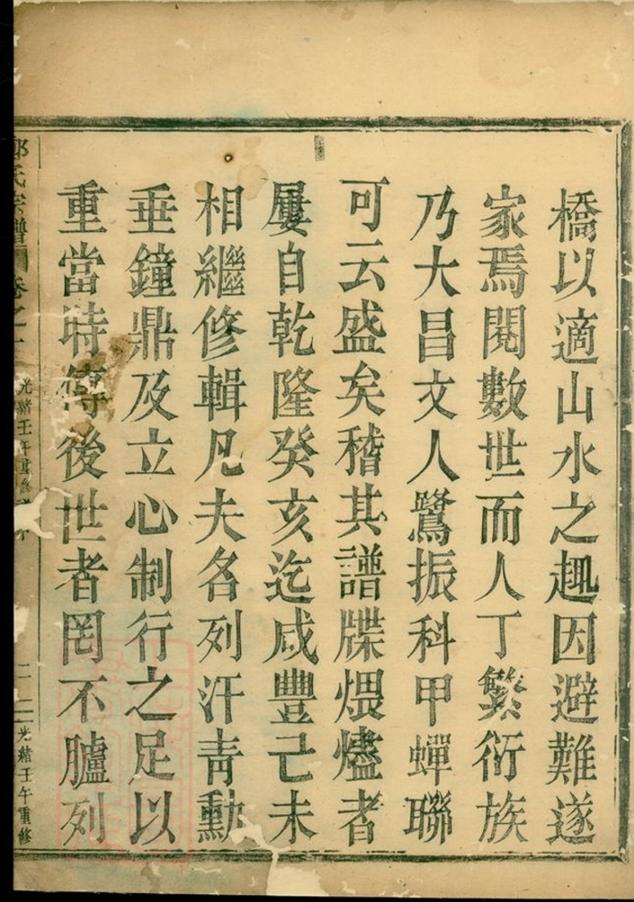 橋以適山水之趣因避難遂
家焉閱數世而人丁繁衍族
乃大昌文人鷺振科甲蟬聯
可云盛矣稽其譜牒煨燼者
屢自乾隆癸亥迄咸豐己未
相繼修輯凡夫名列汗青勳
垂鐘鼎及立心制行之足以
重當時傳後世者罔不臚列
氏宗譜 卷之 光緒壬午重修 二 光緒壬午重修